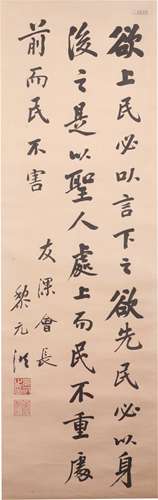 欲上民必以言下之欲先民必以身
後之是以聖人處上而民不重處
前而民不害
友渠會長
黎元洪